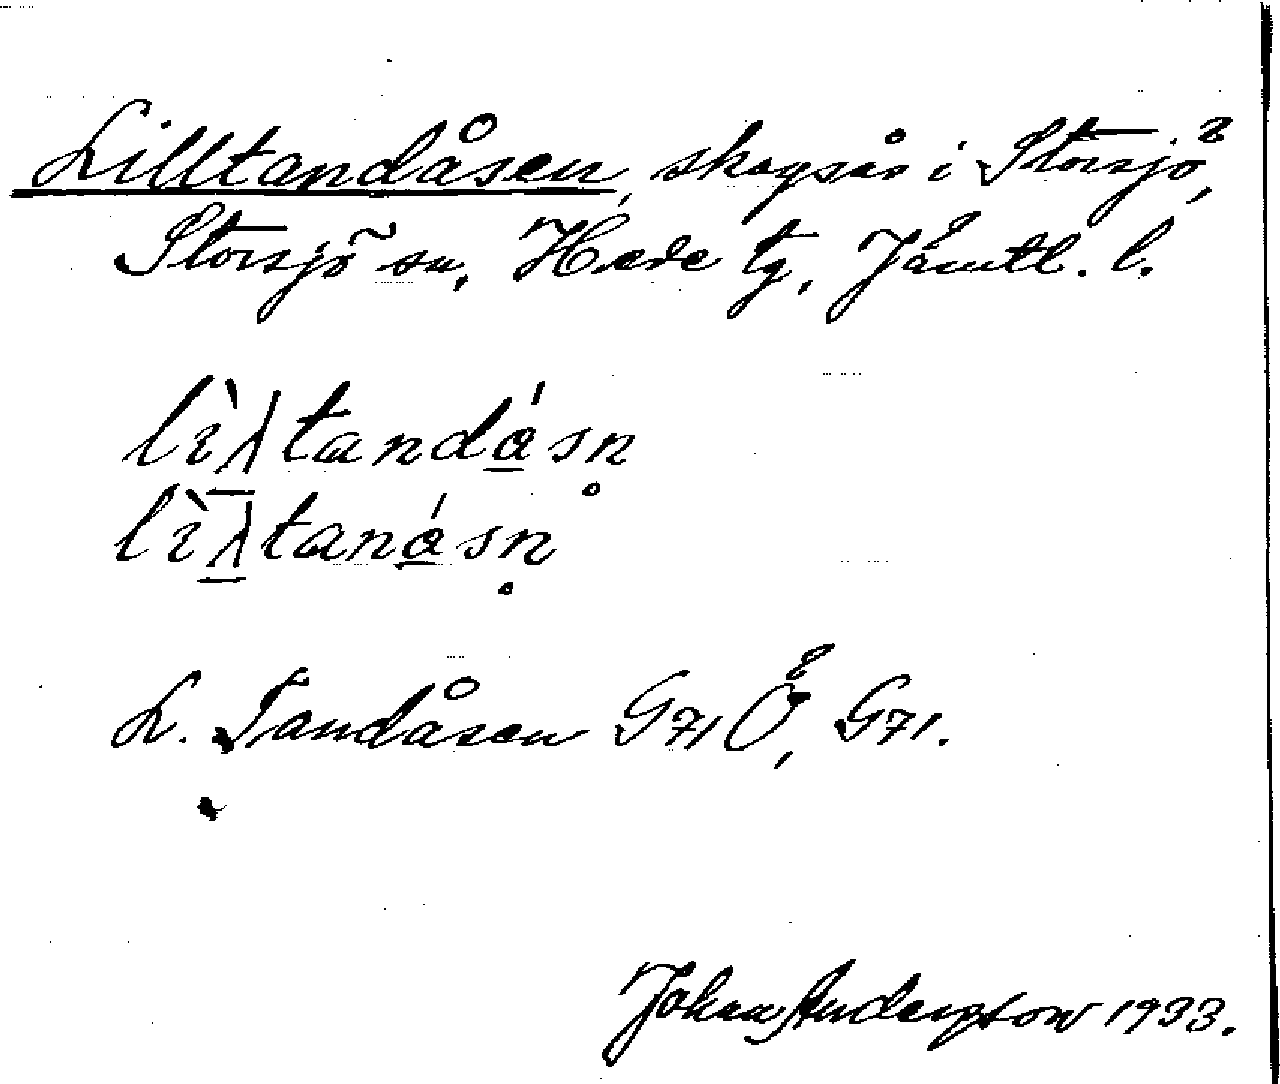 Lilltandåsen, skogsås i Storsjö,
Storsjö sn, Hede tg, Jämtl. l.
lìλtandásn̥
lìλtanásn̥
L. Tandåsen G71Ö, G71.
Johan Andersson 1933.